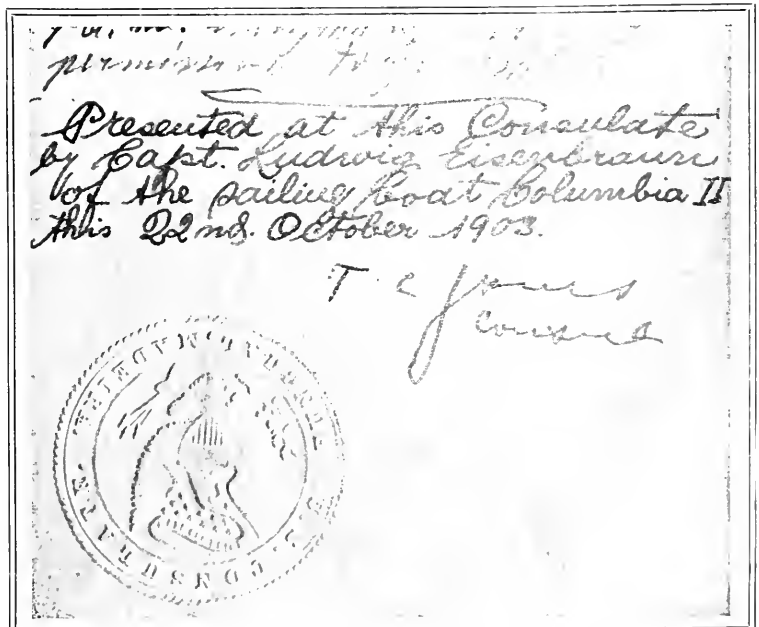 permission to
Presented at this Consulate
by Capt. Ludwig Eisenbraun
of the sailing boat Columbia II
this 22nd. October 1903.
T C Jones
Consul
U.S. CONSULATE